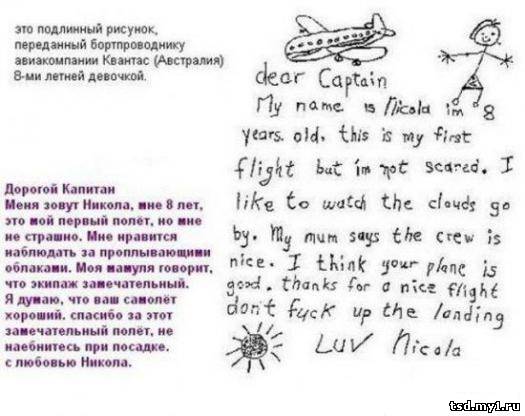 это подлинный рисунок,
переданный бортпроводнику
авиакомпании Квантас (Австралия)
8-ми летней девочкой.
dear Captain
My name is Nicola im 8
years. old, this is my first
flight but i'm not scared. I
like to watch the clouds go
by. My mum says the crew is
nice. I think your plane is
good. thanks for a nice flight
don't fuck up the landing
LUV Nicola
Дорогой Капитан
Меня зовут Никола, мне 8 лет,
это мой первый полёт, но мне
не страшно. Мне нравится
наблюдать за проплывающими
облаками. Моя мамуля говорит,
что экипаж замечательный.
Я думаю, что ваш самолёт
хороший. спасибо за этот
замечательный полёт, не
наебнитесь при посадке.
с любовью Никола.
tsd.my1.ru